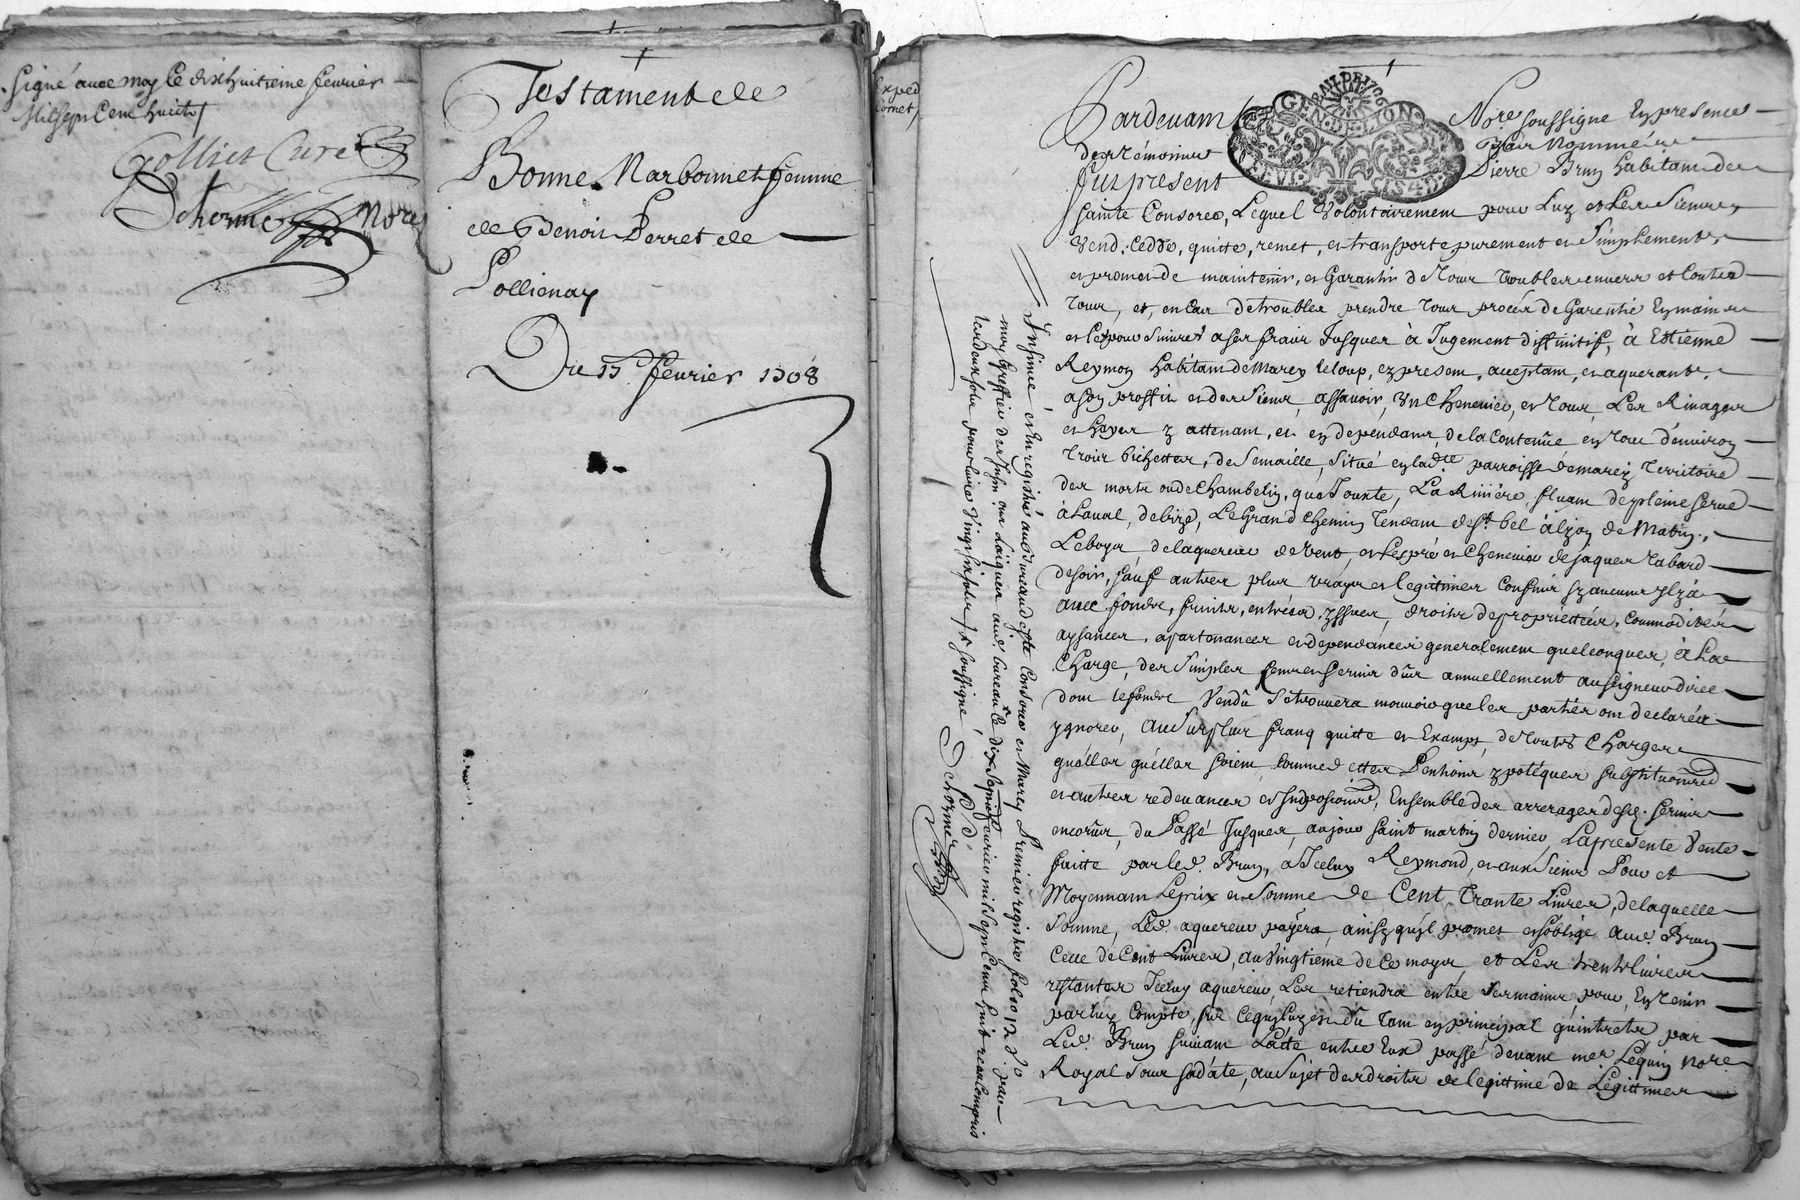 signé avec moy le dixhuitieme feurier
Milsept cent huict
Golliet Curé
Dehorme Nore
Testament de
Bonne Marbonnet femme
de Benoit Perret de
Pollienay
Du 15 feurier 1708
Exped
Cornet
GEN. DE. LYON
Pardeuant Nore. soussigne En presence
des témoins nommés
fut present Pierre Brun habitant de
sainte Consorce, Lequel Volontairement pour Luy et Les Siens
Vend, Cedde, quitte, remet, et transporte purement et Simplement
et promet de maintenir, et Garantir de tour troubles enuers et Contre
tour, et, en Cas de troubles prendre tour procés de Garentie En main
et les poursuiure a ses fraix Jusques à Jugement diffinitif, à Estienne
Reymon habitant de Marcy le loup, cy present, acceptant, et aquerant,
a son proffit et des Siens, assauoir, Vn Cheneuier, et tour, Les Riuages
et hayes y attenant, et en dependant, de la Contenue en tour d'enuiron
trois bichettes, de Semaille, Situé en lad.te parroisse de marcy territoire
des morts ou de Chambelin, que Jouxte, La Riuiére, fluant
de bize, Le Grand Chemin tendant de St. bel à lyon de Matin,
Le boys de laquereur de Vent, et Les pré et Cheneuier de jaques tabard
de soir, sauf autres plus vrays et legitimes Confins sy aucuns yl y à
auec fondz, fruits, entrées, yssues, droits de proprietés, Commodités
aysances, apartenances et dependances generalement quelconques, à La
Charge, des Simples Cens et seruis dûs annuellement au seigneur direc
dont le fondz Vendû Se trouuera mouuoir que les parties ont declarés
ygnorer, au Surplus franq quitte et Exampt, de toutes Charges
quelles quelles soient, Comme dettes Penssions ypotéques substitutions
et autres redeuances et Impositions, Ensemble des arrerages desd. seruis
encorûs, du Passé Jusques, au jour saint martin dernier, La presente Vente
faitte par led. Brun, a Iceluy Reymond, et aux Siens Pour et
Moyennant Le prix et Somme de Cent trante Liures, de laquelle
Somme, Led. aquereur payera, ainsy qu'yl promet et s'oblige aud. Brun
Celle de Cent Liures, au Vingtieme de Ce moys, et Les trente liures
restantes Iceluy aquereur Les retiendra entre Ses mains pour, En tenir
par luy Compte, sur Ce qui luy est dû tant en principal qu'intrets par
Led. Brun suiuant L'acte entre Eux passé deuant mer. Lequin nore
Royal Sous sa date, au Sujet des droits de legittime de Legittimes
Insinué et Enregistré au bureau de ste Consorce et Marcy Premier registre folio 12 vo. par
moy Greffier des Insin. aux Laiques aud. bureau Ce dix feurier mil Sept Cent huit
Receu pour Vingt sols soussigné,
Dehorme